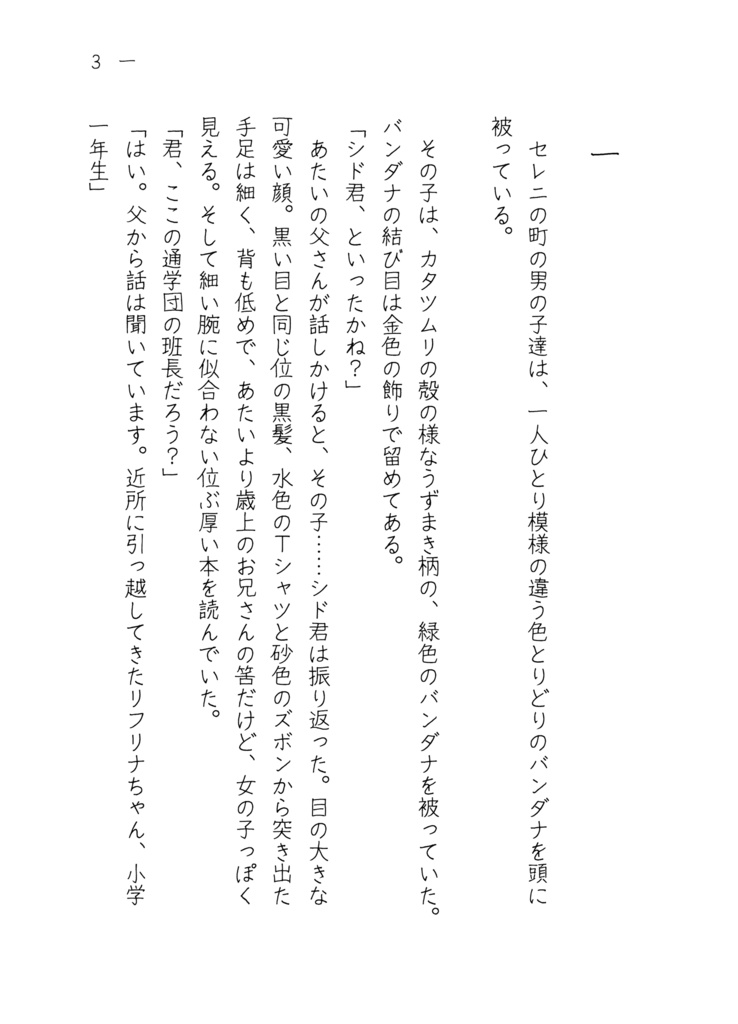 3　一
一
　セレニの町の男の子達は、一人ひとり模様の違う色とりどりのバンダナを頭に
被っている。
　その子は、カタツムリの殻の様なうずまき柄の、緑色のバンダナを被っていた。
バンダナの結び目は金色の飾りで留めてある。
「シド君、といったかね？」
　あたいの父さんが話しかけると、その子……シド君は振り返った。目の大きな
可愛い顔。黒い目と同じ位の黒髪、水色のTシャツと砂色のズボンから突き出た
手足は細く、背も低めで、あたいより歳上のお兄さんの筈だけど、女の子っぽく
見える。そして細い腕に似合わない位ぶ厚い本を読んでいた。
「君、ここの通学団の班長だろう？」
「はい。父から話は聞いています。近所に引っ越してきたリフリナちゃん、小学
一年生」